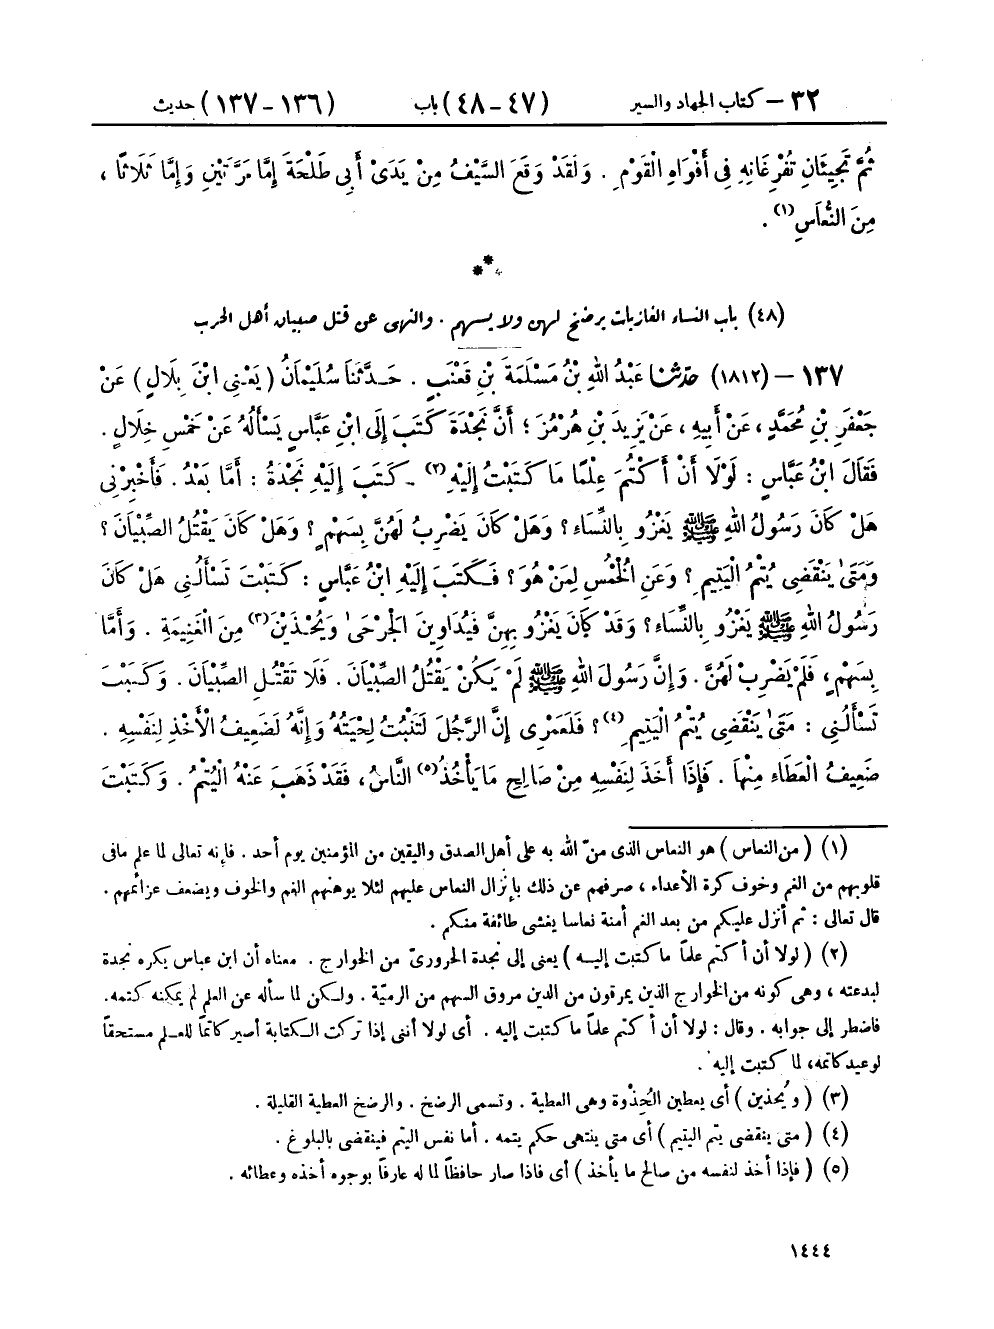 ٣٢ – كتاب الجهاد والسير (٤٧ – ٤٨) باب (١٣٦ – ١٣٧) حديث
ثُمَّ تَجِيئَانِ تُفْرِغَانِهِ فِي أَفْوَاهِ الْقَوْمِ . وَلَقَدْ وَقَعَ السَّيْفُ مِنْ يَدَىْ أَبِي طَلْحَةَ إِمَّا مَرَّتَيْنِ وَإِمَّا ثَلَاثًا ،
مِنَ النُّعَاسِ(١) .
(٤٨) باب النساء الغازيات يرضخ لهن ولا يسهم . والنهى عن قتل صبيان أهل الحرب
١٣٧ – (١٨١٢) حدّثنا عَبْدُ اللهِ بْنُ مَسْلَمَةَ بْنِ قَعْنَبٍ . حَدَّثَنَا سُلَيْمَانُ ( يَعْنِي ابْنَ بِلَالٍ ) عَنْ
جَعْفَرِ بْنِ مُحَمَّدٍ ، عَنْ أَبِيهِ ، عَنْ يَزِيدَ بْنِ هُرْمُزَ ؛ أَنَّ نَجْدَةَ كَتَبَ إِلَى ابْنِ عَبَّاسٍ يَسْأَلُهُ عَنْ خَمْسِ خِلَالٍ .
فَقَالَ ابْنُ عَبَّاسٍ : لَوْلَا أَنْ أَكْتُمَ عِلْمًا مَا كَتَبْتُ إِلَيْهِ(٢) . كَتَبَ إِلَيْهِ نَجْدَةُ : أَمَّا بَعْدُ . فَأَخْبِرْنِي
هَلْ كَانَ رَسُولُ اللهِ ﷺ يَغْزُو بِالنِّسَاءِ ؟ وَهَلْ كَانَ يَضْرِبُ لَهُنَّ بِسَهْمٍ ؟ وَهَلْ كَانَ يَقْتُلُ الصِّبْيَانَ ؟
وَمَتَى يَنْقَضِي يُتْمُ الْيَتِيمِ ؟ وَعَنِ الْخُمْسِ لِمَنْ هُوَ ؟ فَكَتَبَ إِلَيْهِ ابْنُ عَبَّاسٍ : كَتَبْتَ تَسْأَلُنِي هَلْ كَانَ
رَسُولُ اللهِ ﷺ يَغْزُو بِالنِّسَاءِ ؟ وَقَدْ كَانَ يَغْزُو بِهِنَّ فَيُدَاوِينَ الْجَرْحَى وَيُحْذَيْنَ(٣) مِنَ الْغَنِيمَةِ . وَأَمَّا
بِسَهْمٍ ، فَلَمْ يَضْرِبْ لَهُنَّ . وَإِنَّ رَسُولَ اللهِ ﷺ لَمْ يَكُنْ يَقْتُلُ الصِّبْيَانَ . فَلَا تَقْتُلِ الصِّبْيَانَ . وَكَتَبْتَ
تَسْأَلُنِي : مَتَى يَنْقَضِي يُتْمُ الْيَتِيمِ(٤) ؟ فَلَعَمْرِي إِنَّ الرَّجُلَ لَتَنْبُتُ لِحْيَتُهُ وَإِنَّهُ لَضَعِيفُ الْأَخْذِ لِنَفْسِهِ .
ضَعِيفُ الْعَطَاءِ مِنْهَا . فَإِذَا أَخَذَ لِنَفْسِهِ مِنْ صَالِحِ مَا يَأْخُذُ(٥) النَّاسُ ، فَقَدْ ذَهَبَ عَنْهُ الْيُتْمُ . وَكَتَبْتَ
(١) ( من النعاس ) هو النعاس الذى منّ الله به على أهل الصدق واليقين من المؤمنين يوم أحد . فإنه تعالى لما علم مافى
قلوبهم من الغم وخوف كرة الأعداء ، صرفهم عن ذلك بإنزال النعاس عليهم لئلا يوهنهم الغم والخوف ويضعف عزائمهم .
قال تعالى : ثم أنزل عليكم من بعد الغم أمنة نعاسا يغشى طائفة منكم .
(٢) ( لولا أن أكتم علماً ما كتبت إليه ) يعنى إلى نجدة الحرورىّ من الخوارج . معناه أن ابن عباس يكره نجدة
لبدعته ، وهى كونه من الخوارج الذين يمرقون من الدين مروق السهم من الرميّة . ولكن لما سأله عن العلم لم يمكنه كتمه.
فاضطر إلى جوابه . وقال : لولا أن أكتم علماً ما كتبت إليه . أى لولا أننى إذا تركت الكتابة أصير كاتماً للعلم مستحقاً
لوعيد كاتمه، لما كتبت إليه .
(٣) ( ويُحذين ) أى يعطين الحُِذْوة وهى العطية . وتسمى الرضخ . والرضخ العطية القليلة .
(٤) ( متى ينقضى يتم اليتيم ) أى متى ينتهى حكم يتمه . أما نفس اليتم فينقضى بالبلوغ .
(٥) ( فإذا أخذ لنفسه من صالح ما يأخذ ) أى فاذا صار حافظاً لما له عارفاً بوجوه أخذه وعطائه .
١٤٤٤